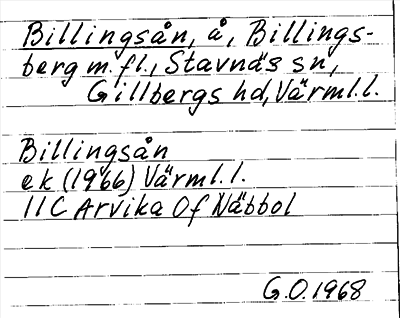 Billingsån, å, Billings-
berg m.fl., Stavnäs sn,
Gillbergs hd, Värml.l.
Billingsån
ek (1966) Värml.l.
11C Arvika Of Näbbol
G.O. 1968